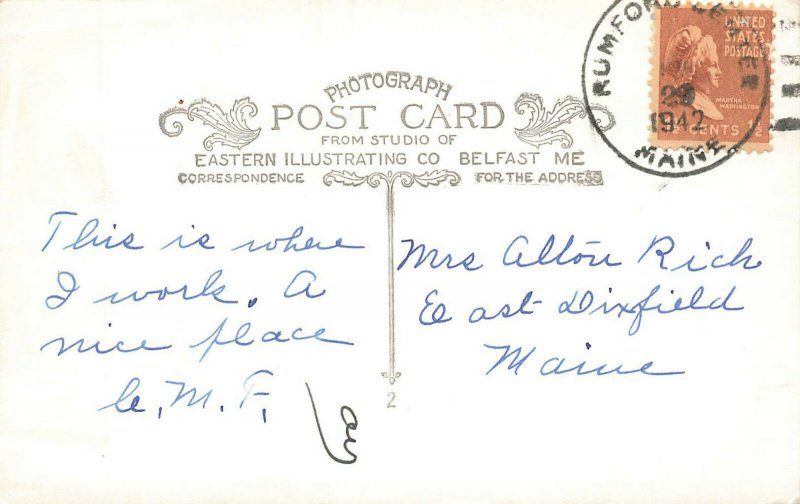 PHOTOGRAPH
POST CARD
FROM STUDIO OF
EASTERN ILLUSTRATING CO BELFAST ME
CORRESPONDENCE FOR THE ADDRESS
RUMFORD CENTER
1942
MAINE
UNITED
STATES
POSTAGE
MARTHA
WASHINGTON
CENTS 1½
This is where
I work. A
nice place
C. M. F.
Mrs Alton Rich
East Dixfield
Maine
2